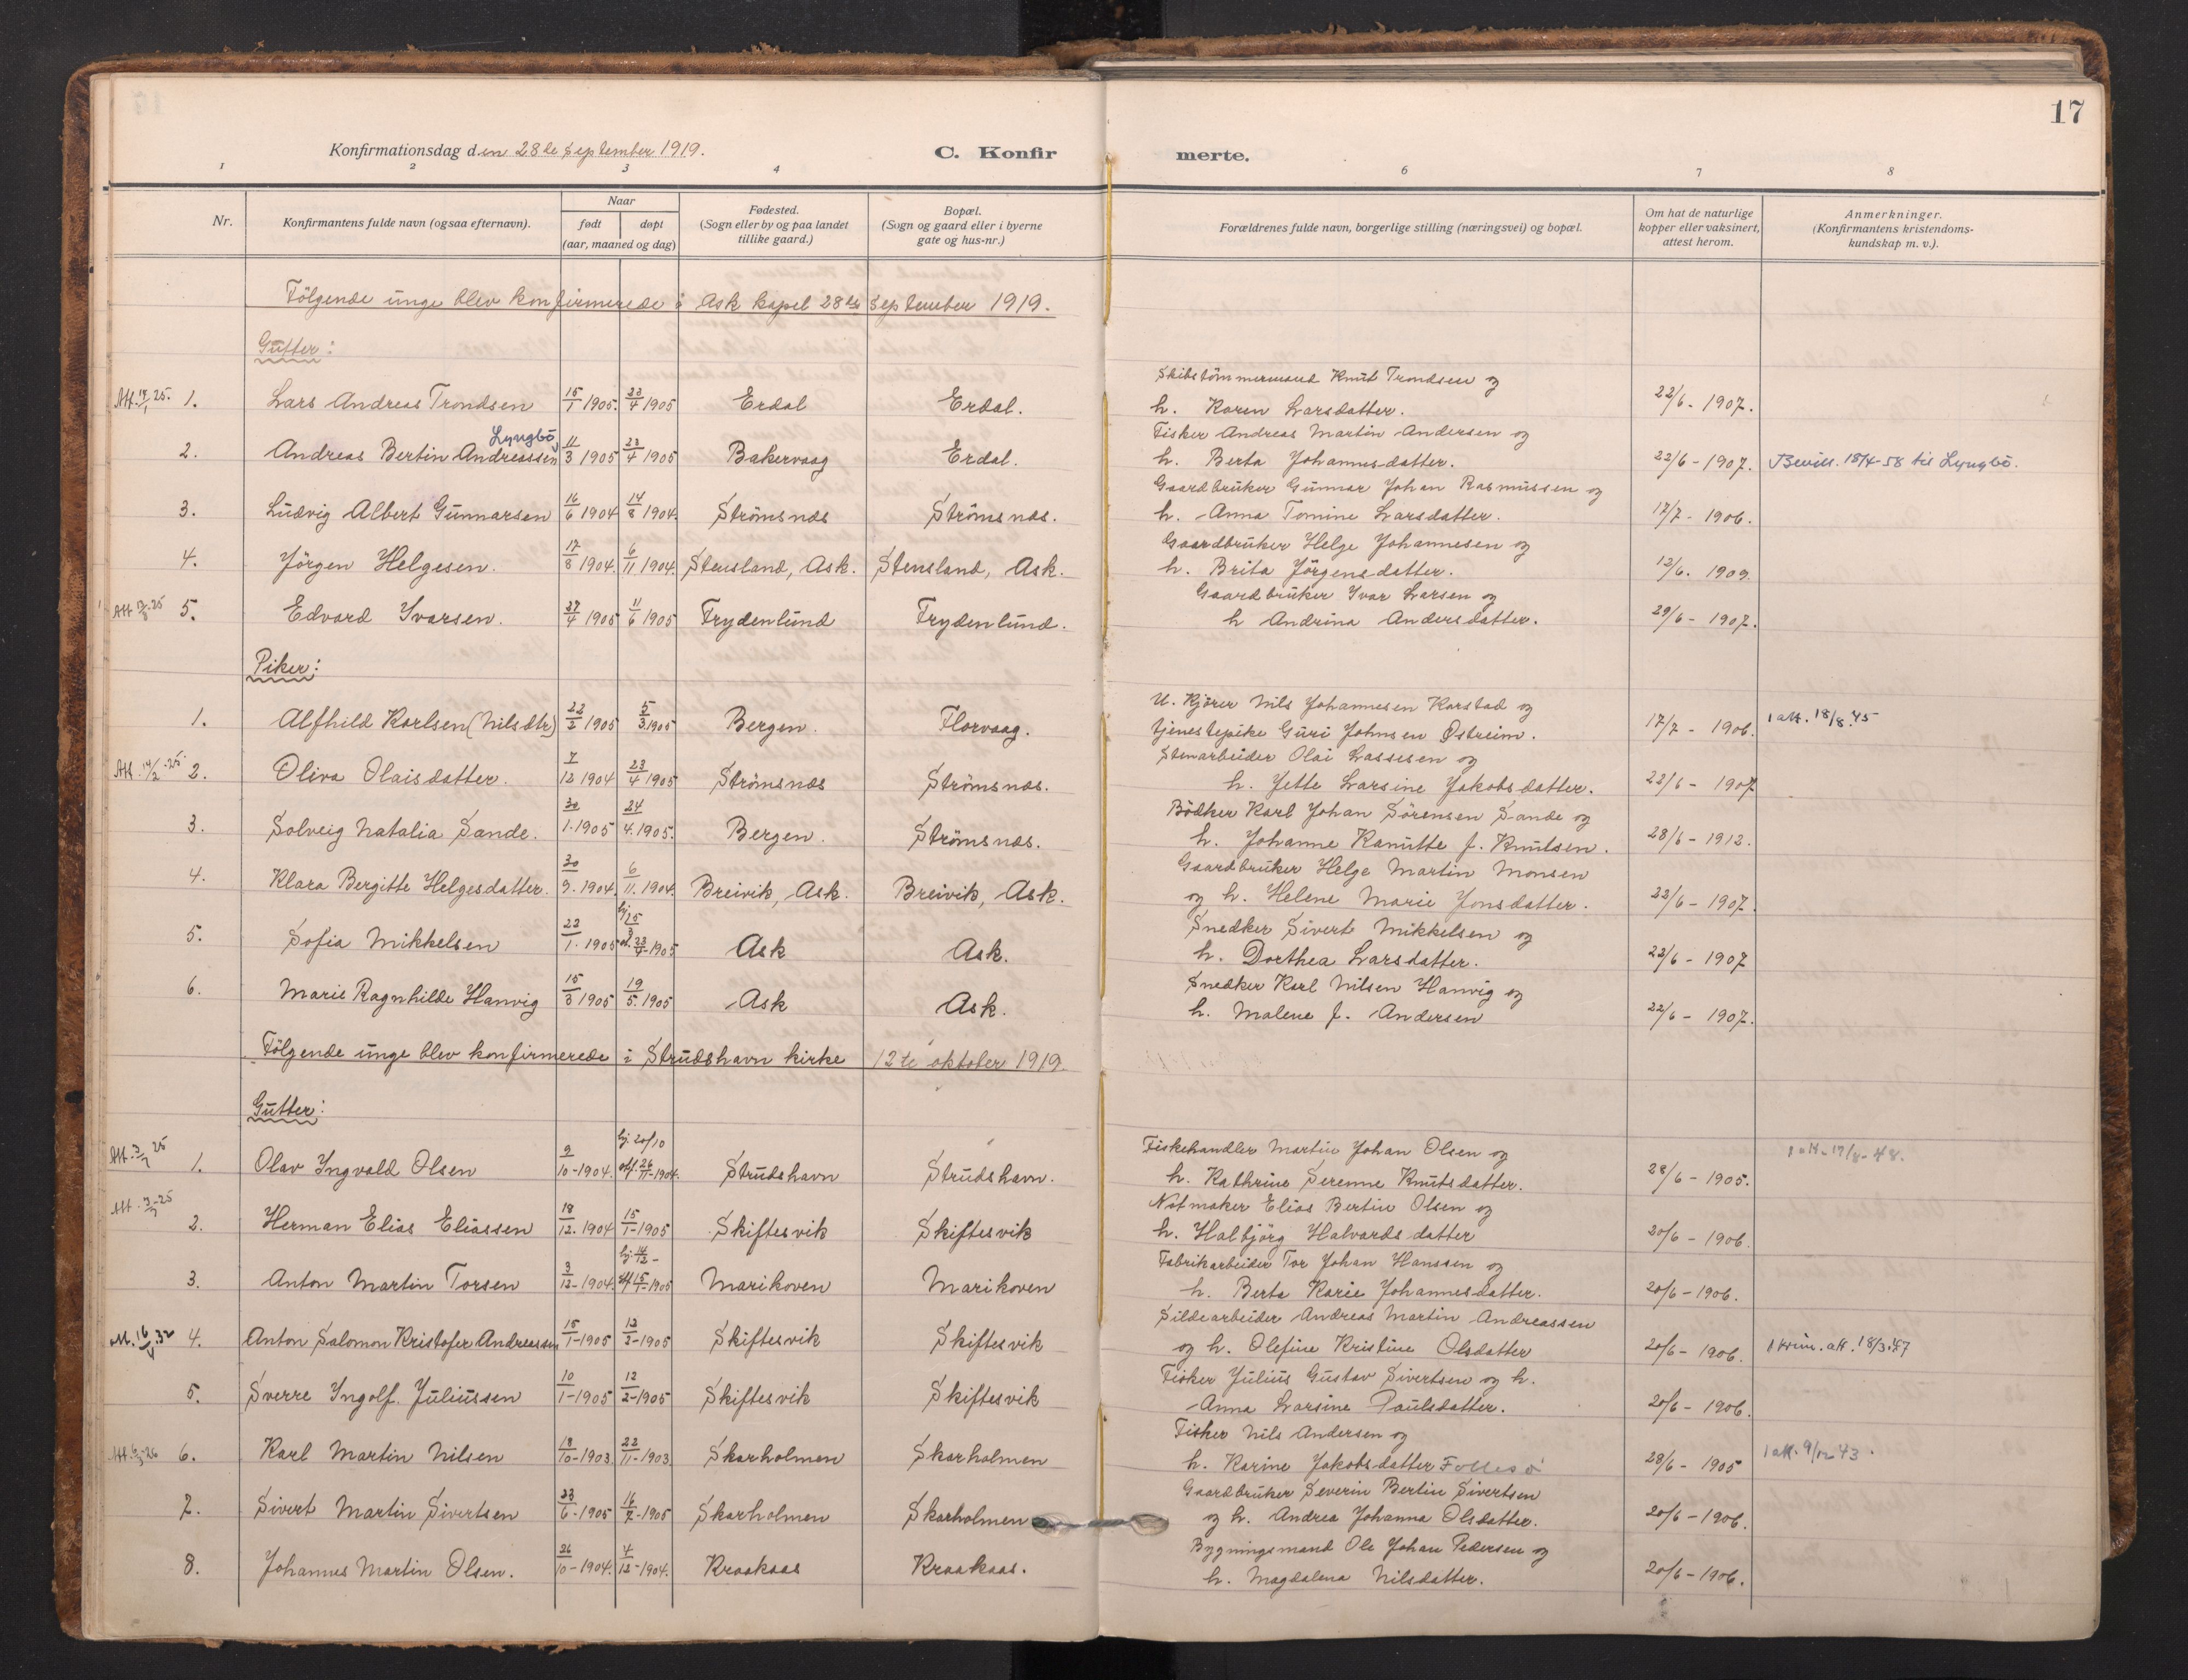 17
Konfirmationsdag den 28de September 1919.
C. Konfir merte.
1 2 3 4 6 7 8
Nr.
Konfirmantens fulde navn (ogsaa efternavn).
Naar
født døpt
(aar, maaned og dag)
Fødested.
(Sogn eller by og paa landet
tillike gaard.)
Bopæl.
(Sogn og gaard eller i byerne
gate og hus-nr.)
Forældrenes fulde navn, borgerlige stilling (næringsvei) og bopæl.
Om hat de naturlige
kopper eller vaksinert,
attest herom.
Anmerkninger.
(Konfirmantens kristendoms-
kundskap m. v.).
Følgende unge blev konfirmerede i Ask kapel 28de September 1919.
Gutter:
Skibstömmermand Knut Trondsen og
Att. 14/1 25. 1. Lars Andreas Trondsen 15/1 1905. 23/4 1905 Erdal Erdal. h. Karen Larsdatter. 22/6 - 1907.
Lyngbö
Fisker Andreas Martin Andersen og
2. Andreas Bertin Andreassen 11/3 1905 23/4 1905 Bakervaag Erdal. h. Berta Johannesdatter. 22/6 - 1907. Bevill. 18/4-58 til Lyngbö.
Gaardbruker Gunnar Johan Rasmussen og
3. Ludvig Albert Gunnarsen 16/6 1904 14/8 1904. Strömsnes Strömsnes. h. Anna Tomine Larsdatter. 17/7 - 1906.
Gaardbruker Helge Johannesen og
4. Jörgen Helgesen. 17/8 1904. 6/11 1904. Stensland, Ask. Stensland, Ask. h. Brita Jörgensdatter. 12/6. 1909.
Gaardbruker Ivar Larsen og
5. Edvard Ivarsen. 27/4 1905 11/6 1905 Frydenlund Frydenlund. h Andrina Andersdatter. 29/6 - 1907.
Piker:
U. Kjörer Nils Johannesen Karstad og
1. Alfhild Karlsen (Nilsdtr) 22/2 1905 5/3 1905 Bergen. Florvaag. tjenestepike Guri Johnsen Østreim. 17/7 - 1906. 1 att. 18/8.45
Stenarbeider Olai Lassesen og
Att. 14/2 -25. 2. Oliva Olaisdatter. 7/12 1904 23/4 1905 Strömsnes Strömsnes. h. Jette Larsine Jakobsdatter. 22/6 - 1907
Bödker Karl Johan Sörensen Sande og
3. Solveig Natalia Sande. 30/1. 1905 24/4. 1905. Bergen. Strömsnes. h. Johanne Kanutte f. Knutsen. 28/6 - 1912.
Gaardbruker Helge Martin Monsen
4. Klara Bergitte Helgesdatter. 30/9. 1904 6/11. 1904. Breivik, Ask. Breivik, Ask. og h. Helene Marie Jonsdatter. 22/6 - 1907.
Snedker Sivert Mikkelsen og
5. Sofia Mikkelsen 23/1. 1905 23/4-1905 Ask Ask. h. Dorthea Larsdatter. 22/6 - 1907
Snedker Karl Nilsen Hanvig og
6. Marie Ragnhilde Hanvig 15/3 1905 19/5. 1905 Ask Ask. h. Malene f. Andersen 22/6 - 1907.
Følgende unge blev konfirmerede i Strudshavn kirke 12te oktober 1919.
Gutter:
Fiskehandler Martin Johan Olsen og
Att. 3/7 25 1. Olav Ingvald Olsen 9/10-1904. hj. 20/10 26/11-1904. Strudshavn Strudshavn. h. Kathrine Serenne Knutsdatter. 28/6 - 1905. 1 att. 17/8-48.
Notmaker Elias Bertin Olsen og
Att. 3/7-25 2. Herman Elias Eliassen 18/12. 1904. 15/1-1905 Skiftesvik Skiftesvik h. Halbjörg Halvardsdatter 20/6 - 1906.
Fabrikarbeider Tor Johan Hanssen og
3. Anton Martin Torsen 3/12-1904. hj. 14/12 - 15/1-1905 Marikoven Marikoven h. Berta Karie Johannesdatter. 20/6 - 1906.
Sildearbeider Andreas Martin Andreassen
att. 16/ 32 4. Anton Salomon Kristofer Andreassen 15/1-1905 12/2-1905 Skiftesvik Skiftesvik og h. Olefine Kristine Olsdatter 20/6 - 1906. 1 krim. att. 18/3.47
Fisker Julius Gustav Sivertsen og h.
5. Sverre Ingolf. Juliussen 10/1-1905 12/2-1905 Skiftesvik Skiftesvik Anna Larsine Paulsdatter. 20/6 - 1906.
Fisker Nils Andersen og
Att. 6/ -26 6. Karl Martin Nilsen 18/10-1903 22/11-1903 Skarholmen Skarholmen h. Karine Jakobsdatter Follesö 28/6 - 1905 1 att. 9/12 43.
Gaardbruker Severin Bertin Sivertsen
7. Sivert Martin Sivertsen 23/6-1905 16/7-1905 Skarholmen Skarholmen og h. Andrea Johanna Olsdatter. 20/6 - 1906.
Bygningsmand Ole Johan Pedersen og
8. Johannes Martin Olsen. 26/10-1904. 4/12-1904. Kraakaas Kraakaas. h. Magdalena Nilsdatter. 20/6 - 1906.